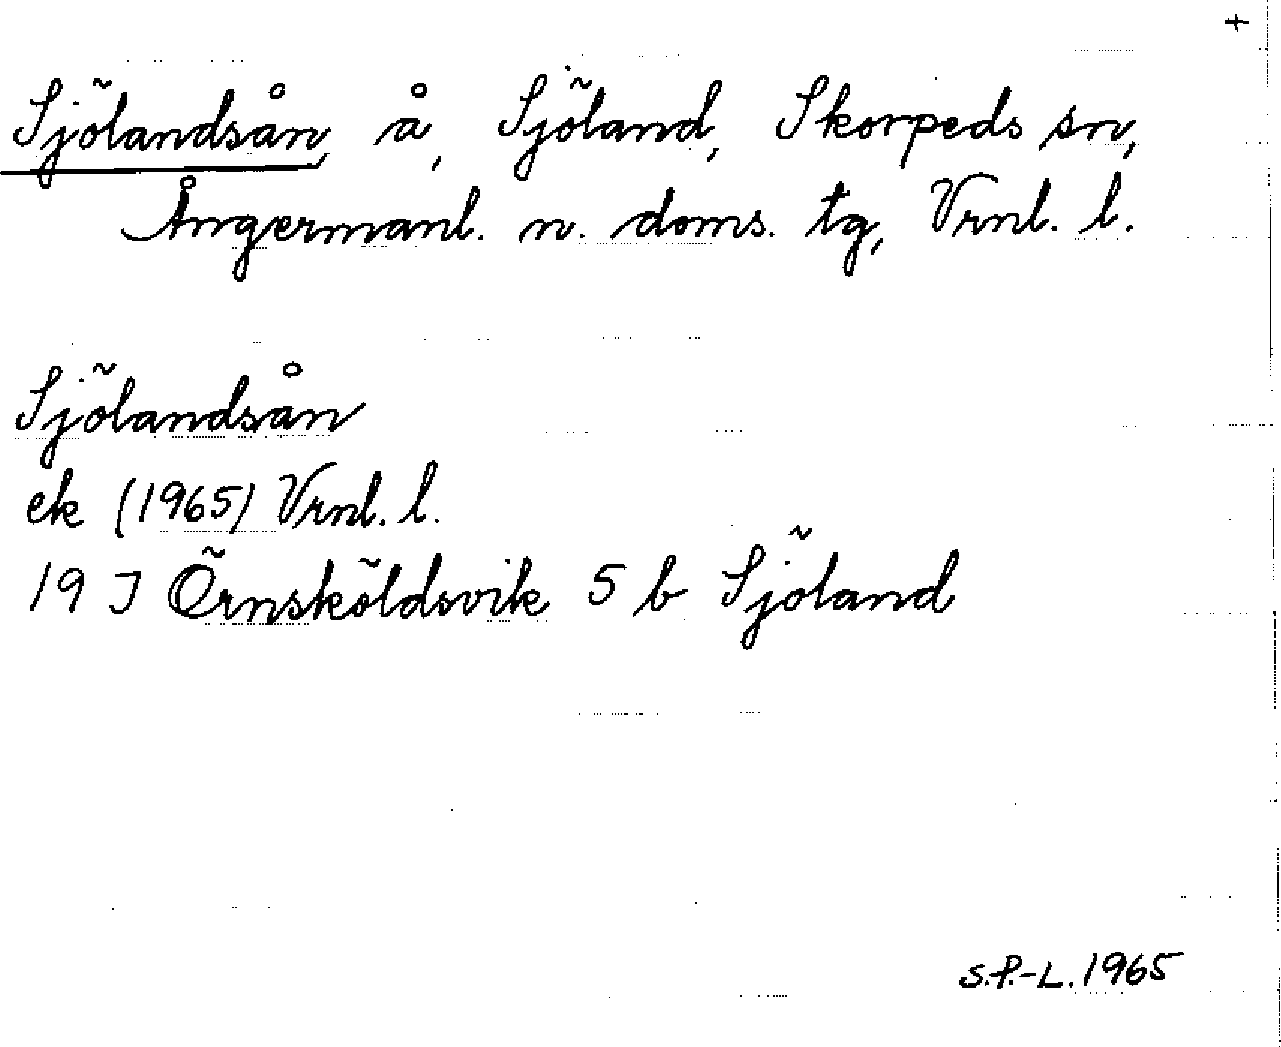 +
Sjölandsån, å, Sjöland, Skorpeds sn,
Ångermanl. n. doms. tg, Vrnl. l.
Sjölandsån
ek (1965) Vrnl. l.
19 J Örnsköldsvik 5 b Sjöland
S.P.-L. 1965